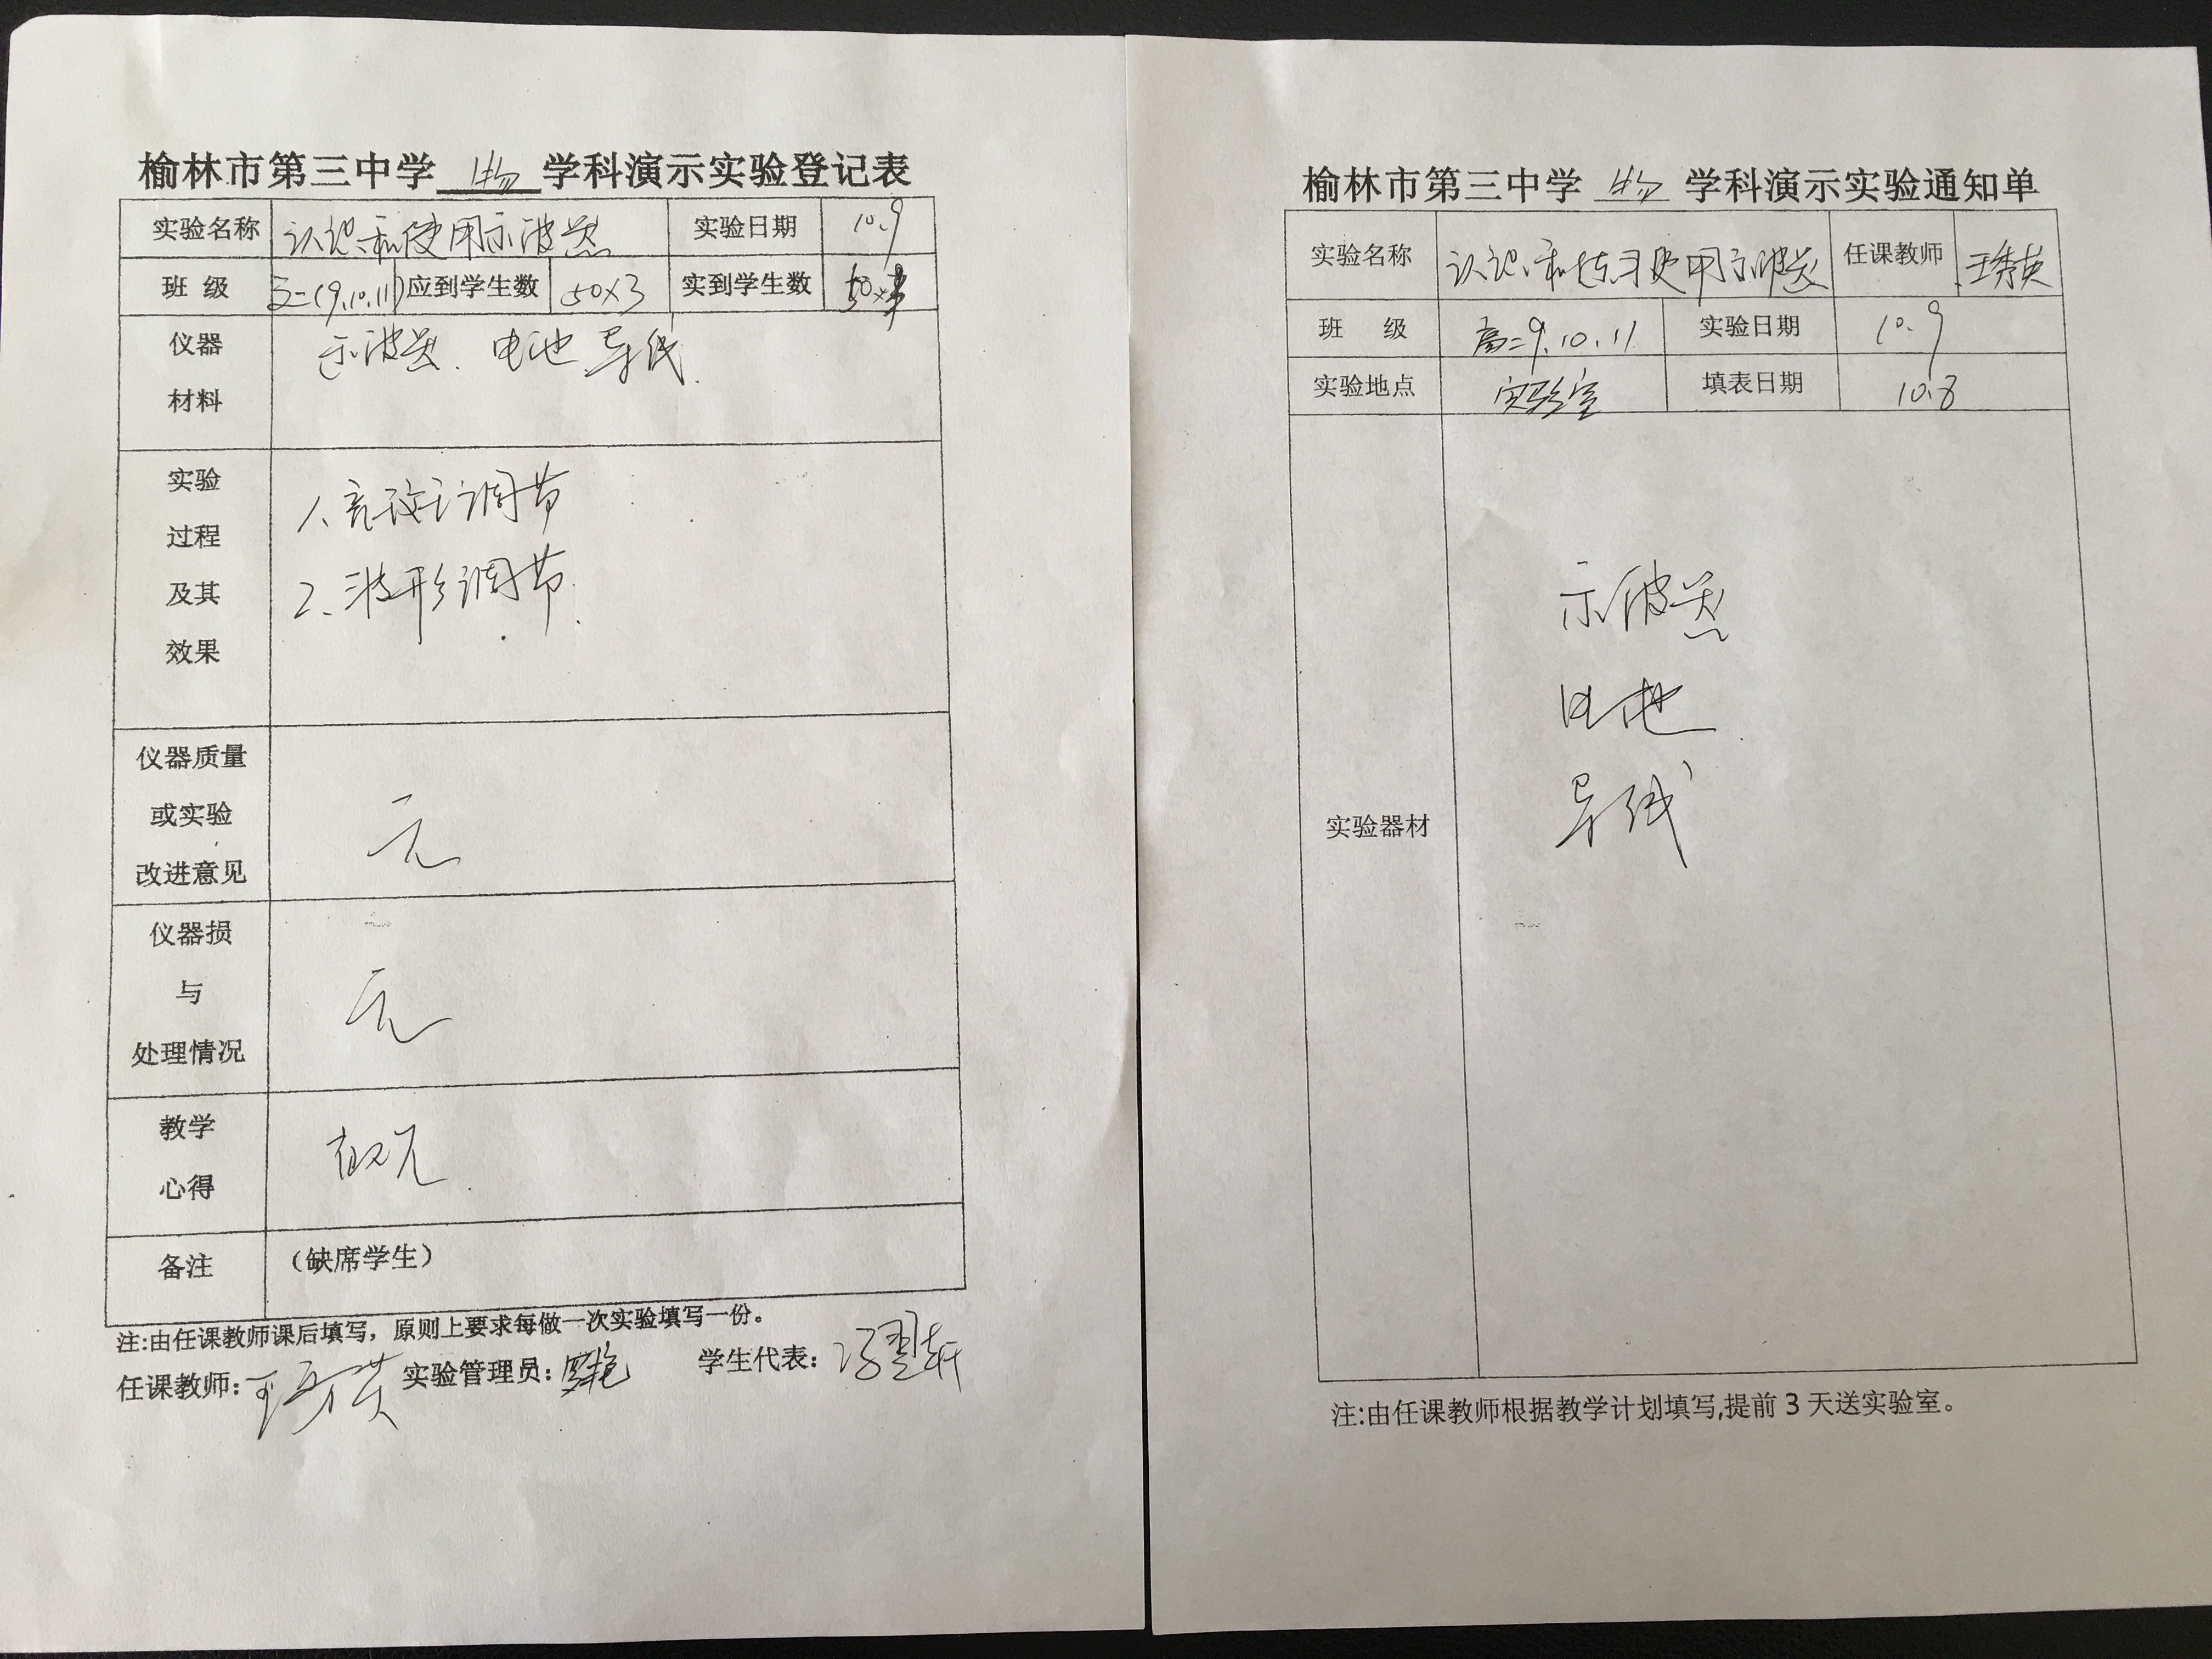 榆林市第三中学 物 学科演示实验登记表
实验名称 认识和使用示波器 实验日期 10.9
班 级 高二(9.10.11) 应到学生数 50×3 实到学生数 50×3
仪器
材料
示波器、电池、导线.
实验
过程
及其
效果
1、亮斑调节
2、波形调节.
仪器质量
或实验
改进意见
无
仪器损
与
处理情况
无
教学
心得
备注 (缺席学生)
注:由任课教师课后填写，原则上要求每做一次实验填写一份。
任课教师: 王秀英 实验管理员: 学生代表:
榆林市第三中学 物 学科演示实验通知单
实验名称 认识和练习使用示波器 任课教师 王秀英
班 级 高二9.10.11 实验日期 10.9
实验地点 实验室 填表日期 10.8
实验器材
示波器
电池
导线
注:由任课教师根据教学计划填写,提前3天送实验室。